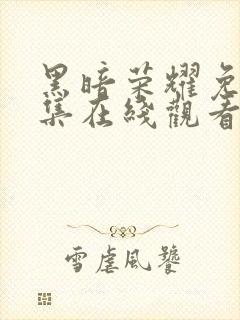 黑暗荣耀免
集在线觀看
雪虐風饕